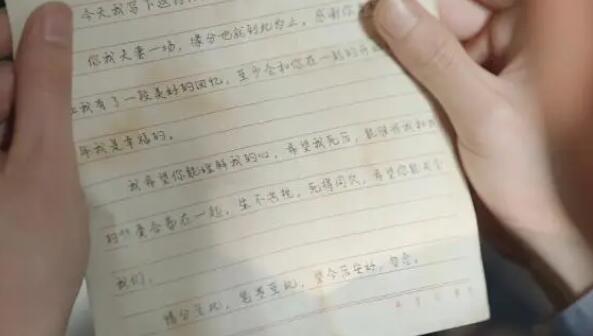 今天我写下这
你我夫妻一场，缘分也就到此为止，感谢你
让我有了一段美好的回忆，至少会和你在一起的
年我是幸福的。
我希望你能理解我的心，希望我死后，能够将我和
的 合葬在一起，生不若死，死得同穴，希望你能成全
我们。
情分至此，笔墨至此，望今后安好，勿念。